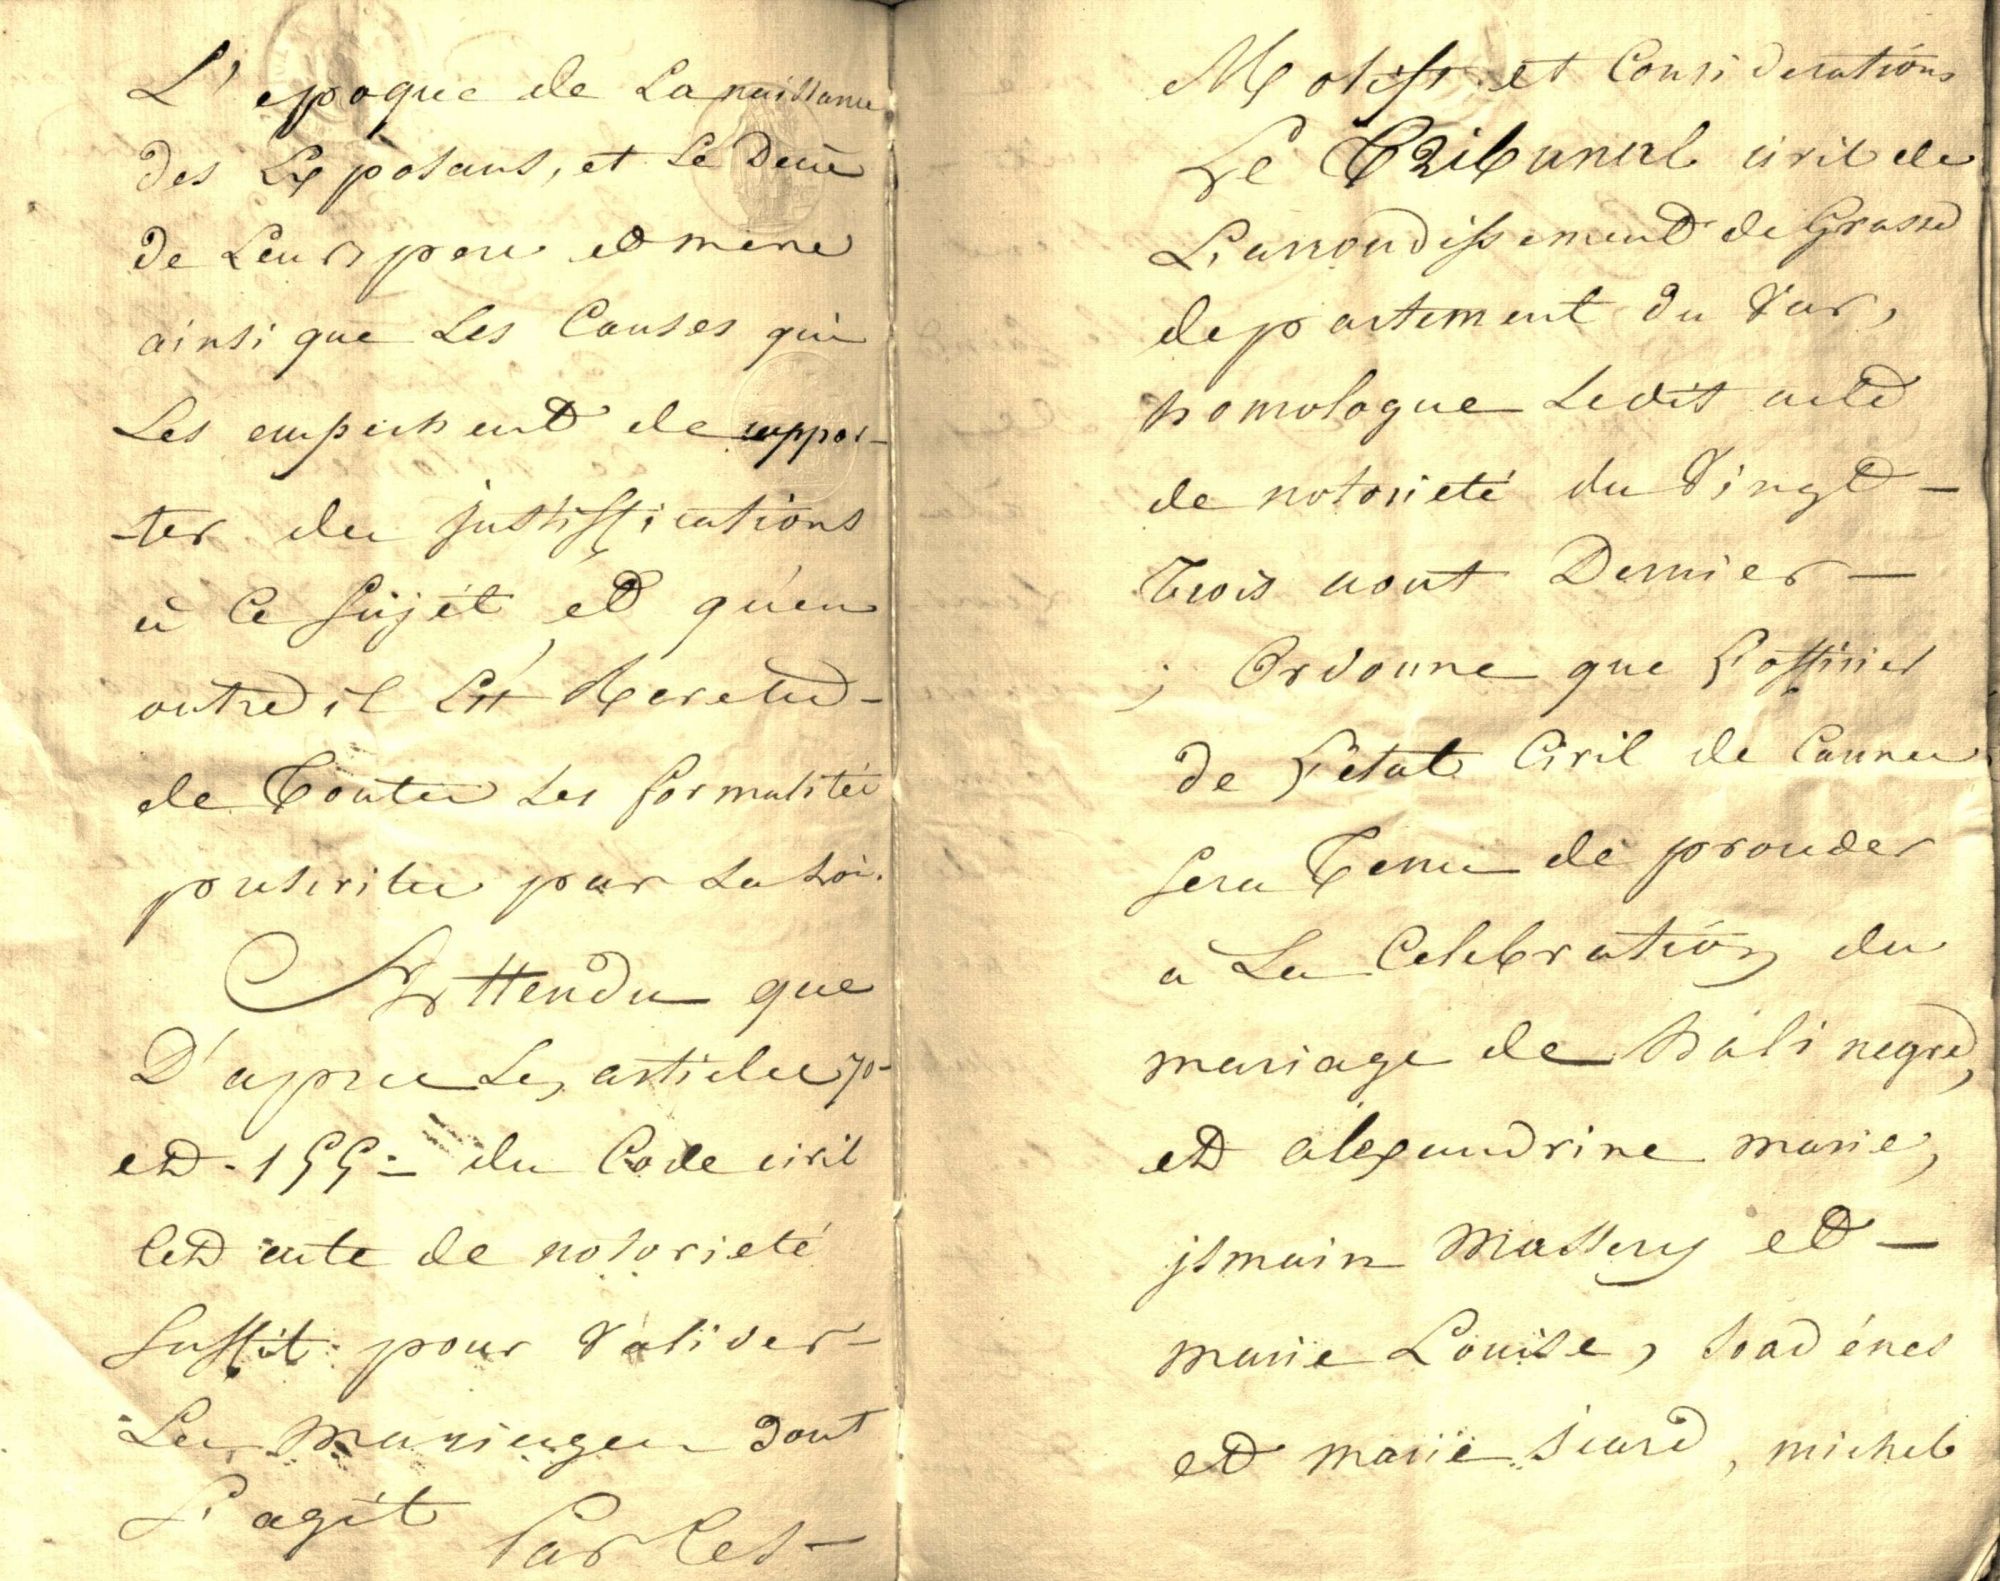 L'epoque de La naissance
des Exposans, et Le Decès
de Leurs pere et mere
ainsi que Les Causes qui
Les empechent de rappor-
-ter des justiffications
à Ce Sujét et qu'en
outre il Est Revetu-
de Toutes Les formalités
prescrites par La Loi.
Attendu que
D'apres Les articles 70-
et. 155= du Code civil
Cet acte de notorieté
Suffit pour Valider-
Les Mariages dont
S'agit Par Ces-
Motifs et Considerations
Le Tribunal civil de
L'arrondissement de Grasse
departement du Var,
homologue Ledit acte
de notorieté du Vingt-
Trois aout Dernier-
; Ordonne que L'officier
de L'etat Civil de Cannes
Sera Tenu de proceder
a La Celebration du
mariage de hali negre,
et alexandrine marie,
jsmain Massery et-
marie Louise,
et marie , michel